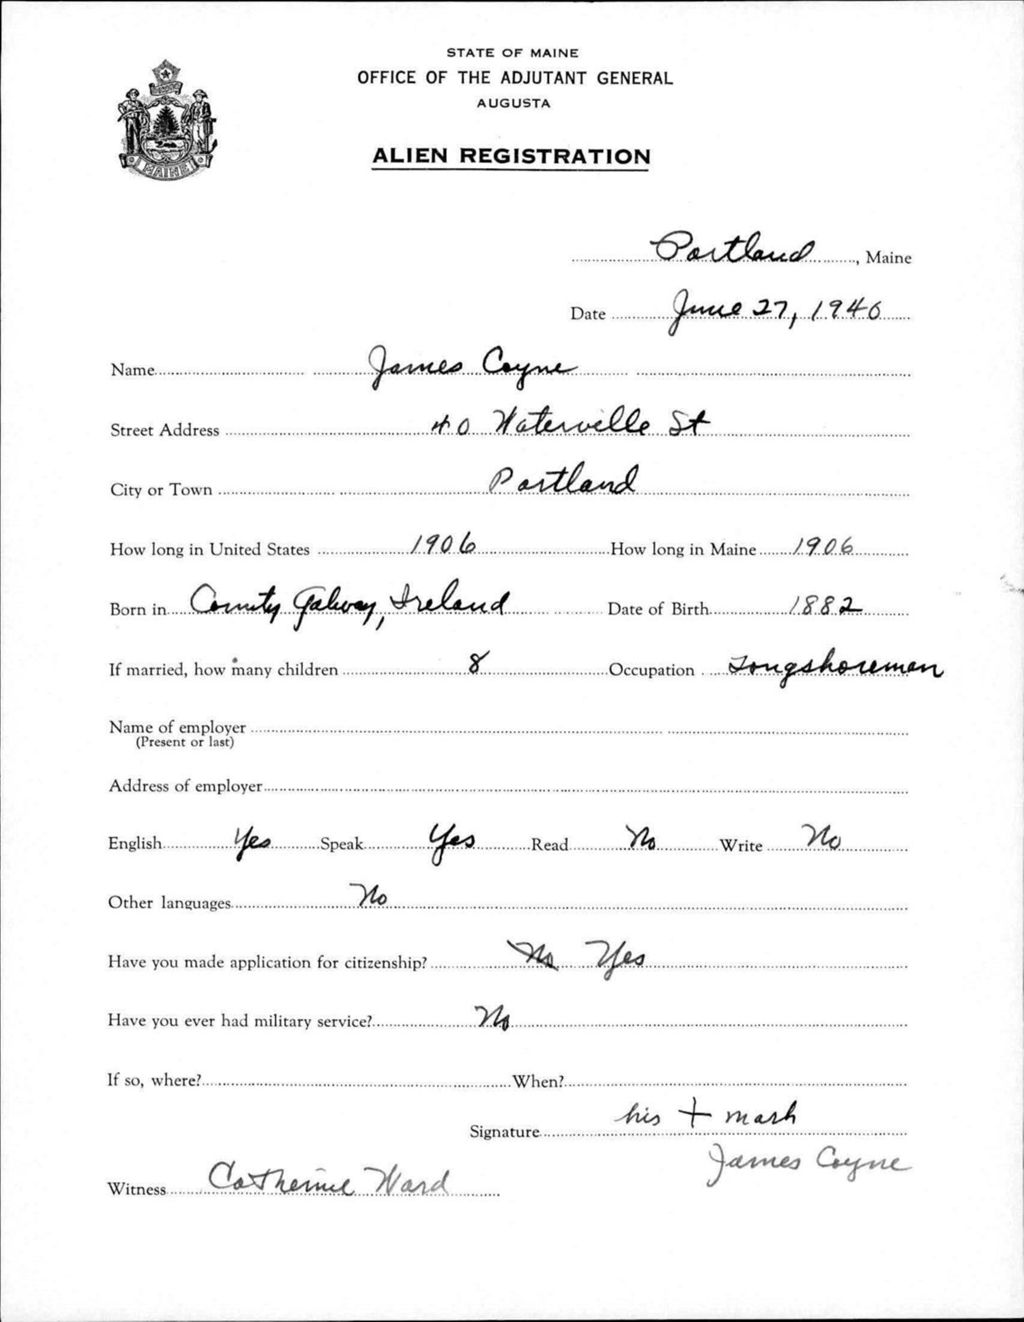 STATE OF MAINE
OFFICE OF THE ADJUTANT GENERAL
AUGUSTA
ALIEN REGISTRATION
MAINE
Portland, Maine
Date June 27, 1940
Name James Coyne
Street Address 40 Waterville St
City or Town Portland
How long in United States 1906 How long in Maine 1906
Born in County Galway, Ireland Date of Birth 1882
If married, how many children 8 Occupation Longshoreman
Name of employer
(Present or last)
Address of employer
English Yes Speak Yes Read No Write No
Other languages No
Have you made application for citizenship? No Yes
Have you ever had military service? No
If so, where? When?
Signature his + mark
James Coyne
Witness Catherine Ward